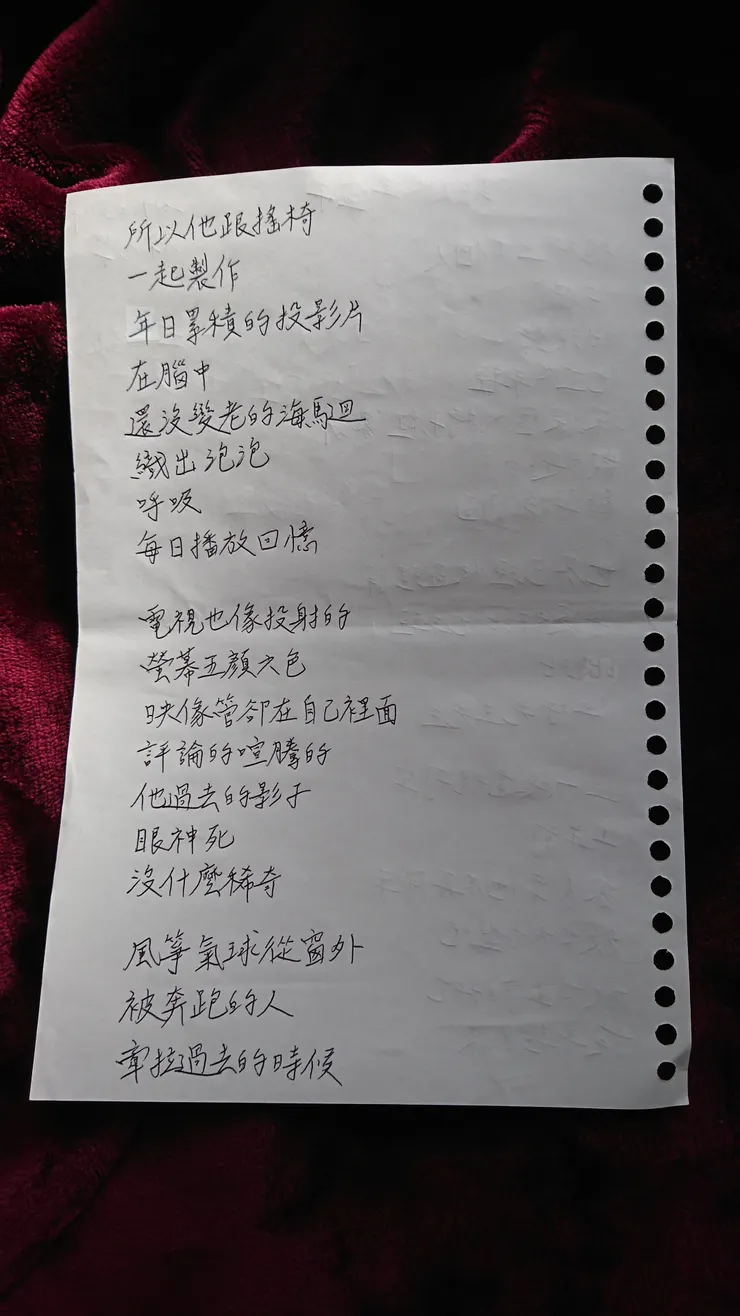 所以他跟搖椅
一起製作
年日累積的投影片
在腦中
還沒變老的海馬迴
織出泡泡
呼吸
每日播放回憶
電視也像投射的
螢幕五顏六色
映像管卻在自己裡面
評論的喧騰的
他過去的影子
眼神死
沒什麼稀奇
風箏氣球從窗外
被奔跑的人
牽拉過去的時候